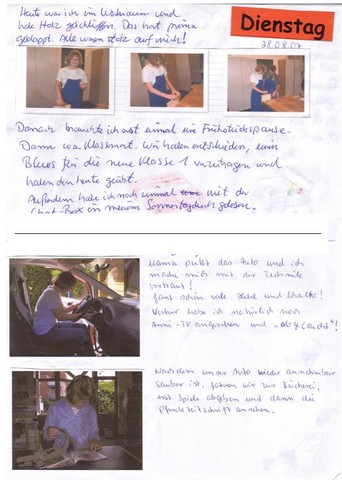 Heute war ich im Werkraum und
habe Holz geschliffen. Das hat prima
geklappt. Alle waren stolz auf mich!
Dienstag
28.08.07
Danach brauchte ich erst einmal eine Frühstückspause.
Dann war Klassenrat. Wir haben entschieden, einen
Blues für die neue Klasse 1 vorzutragen und
haben den heute geübt.
Außerdem habe ich noch einmal mit der
Chat-Box in meinem Sonnentagebuch gelesen.
Mama putzt das Auto und ich
mache mich mit der Technik
vertraut!
Ganz schön viele Hebel und Schalter!
Vorher habe ich natürlich noch
TV angesehen und
Nachdem unser Auto wieder annehmbar
sauber ist, fahren wir zur Bücherei,
erst Spiele abgeben und dann die
Pferdezeitschrift ansehen.